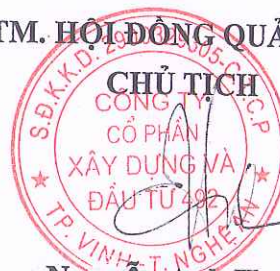 TM. HỘI ĐỒNG QUẢ
CHỦ TỊCH
S.Đ.K.K.D. C.T.C.P
CÔNG TY
CỔ PHẦN
XÂY DỰNG VÀ
ĐẦU TƯ 492
TP. VINH - T. NGHỆ AN